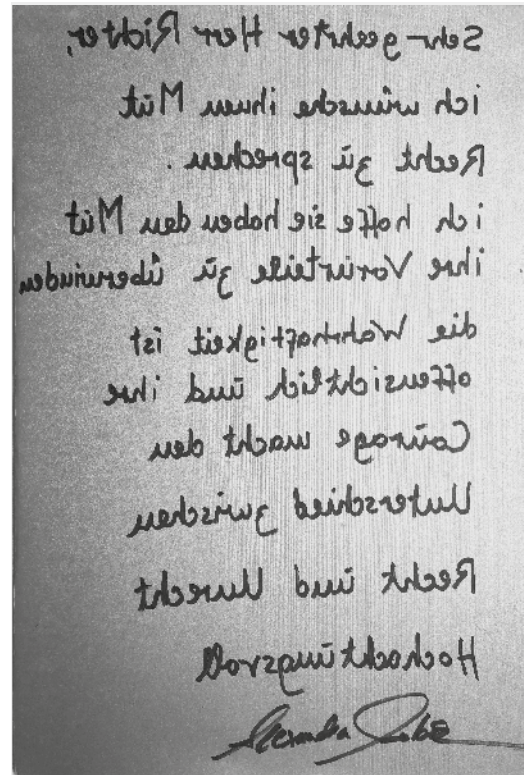 Sehr geehrter Herr Richter,
ich wünsche ihnen Mut
Recht zu sprechen.
ich hoffe sie haben den Mut
ihre Vorurteile zu überwinden
die Wahrhaftigkeit ist
offensichtlich und ihre
Courage macht den
Unterschied zwischen
Recht und Unrecht
Hochachtungsvoll